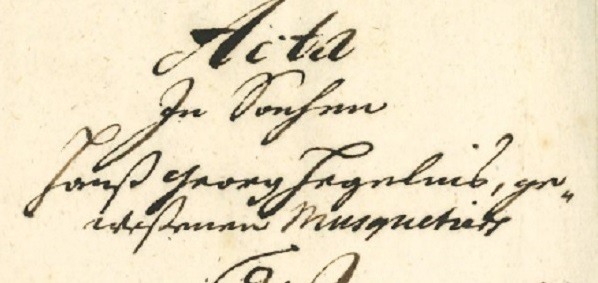 Acta
In Sachen
Hanß Georg Hegelnis, ge„
weßenen Musquetiers